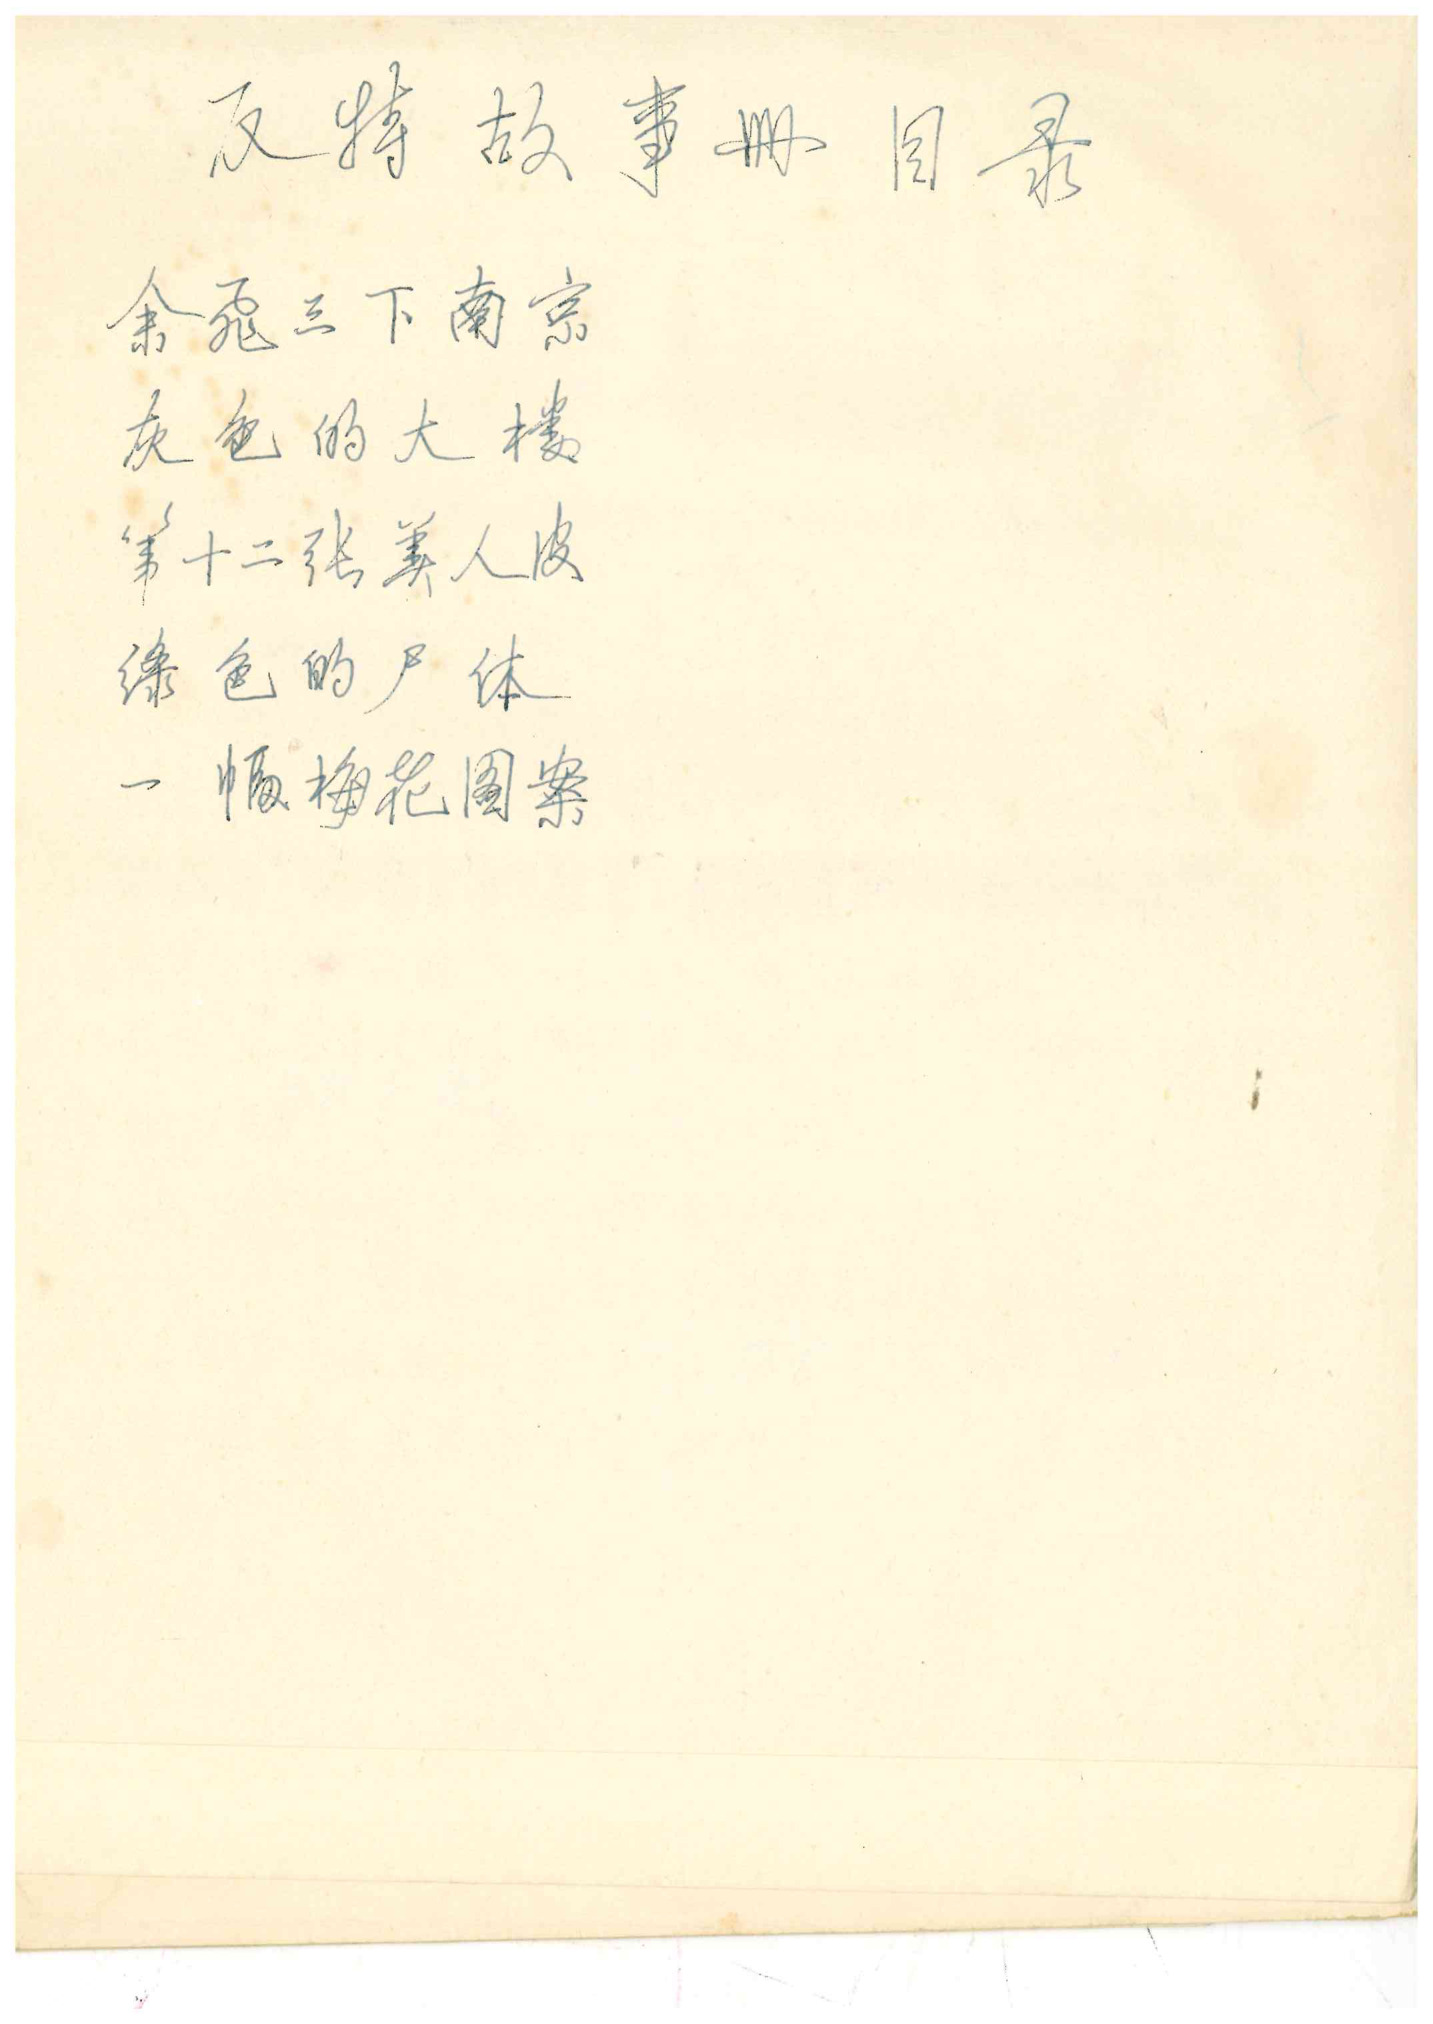 反特故事册目录
余飛三下南京
灰色的大楼
第十二张美人皮
绿色的尸体
一幅梅花图案